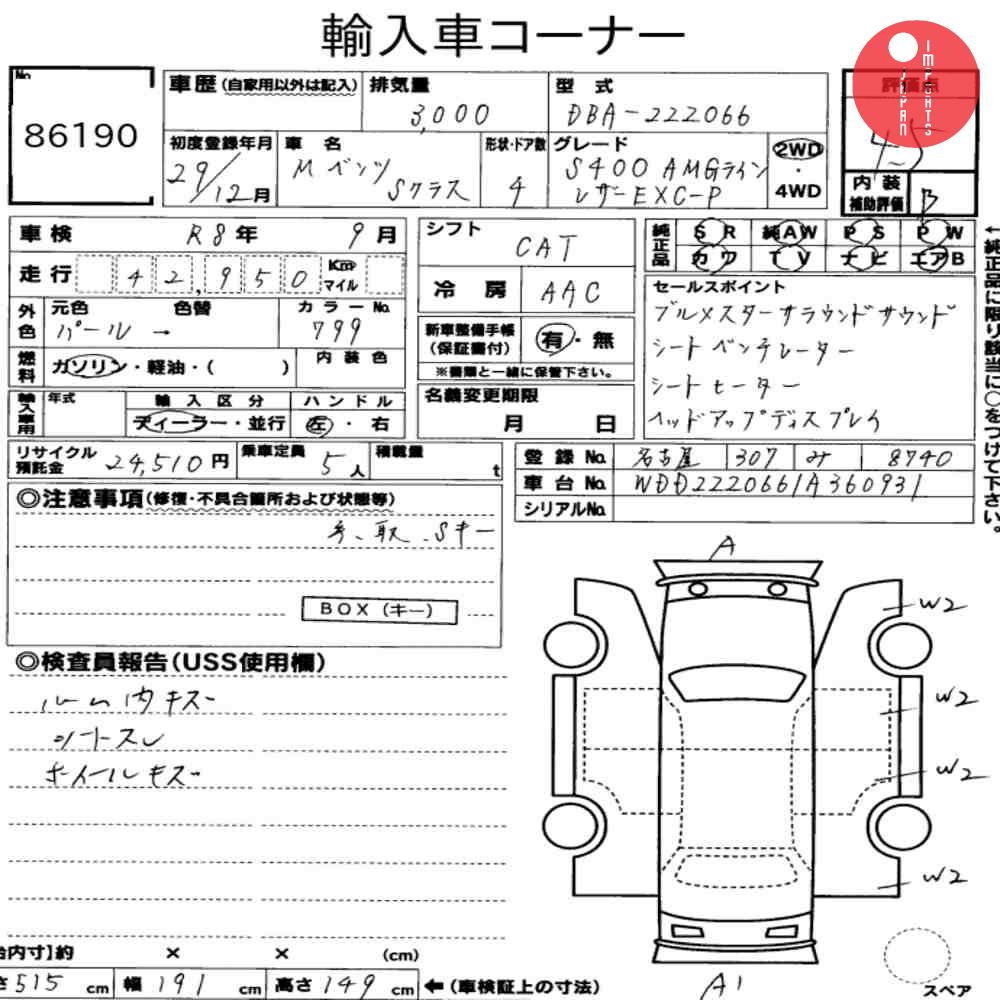 輸入車コーナー
IMPORTS
JAPAN
No
86190
車歴 (自家用以外は記入) 排気量 型式 評価点
3,000 DBA-222066
4.5
初度登録年月 車名 形状・ドア数 グレード 2WD・4WD
29/12月 Mベンツ Sクラス 4 S400 AMGライン
レザーEXC-P
内装補助評価 B
車検 R8年 9月
走行 42,950 Km マイル
外色 元色 色替 カラーNo.
パール → 799
燃料 ガソリン・軽油・( ) 内装色
輸入車用 年式 輸入区分 ハンドル
ディーラー・並行 左・右
シフト CAT
冷房 AAC
新車整備手帳(保証書付) 有・無
※書類と一緒に保管下さい。
名義変更期限
月 日
純正品 SR 純AW PS PW
カワ TV ナビ エアB
セールスポイント
ブルメスターサラウンドサウンド
シートベンチレーター
シートヒーター
ヘッドアップディスプレイ
←純正品に限り該当に○をつけて下さい。
リサイクル預託金 24,510円 乗車定員 5人 積載量 t
登録No. 名古屋 307 み 8740
車台No. WDD2220661A360931
シリアルNo.
◎注意事項(修復・不具合箇所および状態等)
手、取、Sキー
BOX(キー)
◎検査員報告(USS使用欄)
ルーム内キズ
シートスレ
ホイールキズ
A
W2
W2
W2
W2
A1
スペア
台内寸】約 × × (cm)
さ515cm 幅191cm 高さ149cm ←(車検証上の寸法)